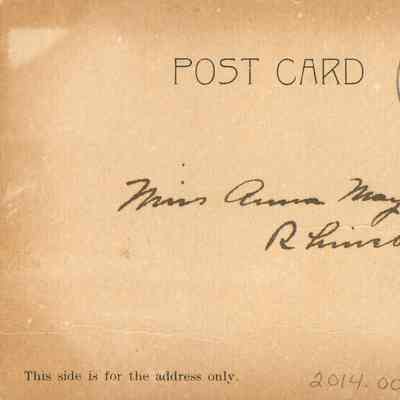 POST CARD
Miss Anna May
This side is for the address only.
2014.00